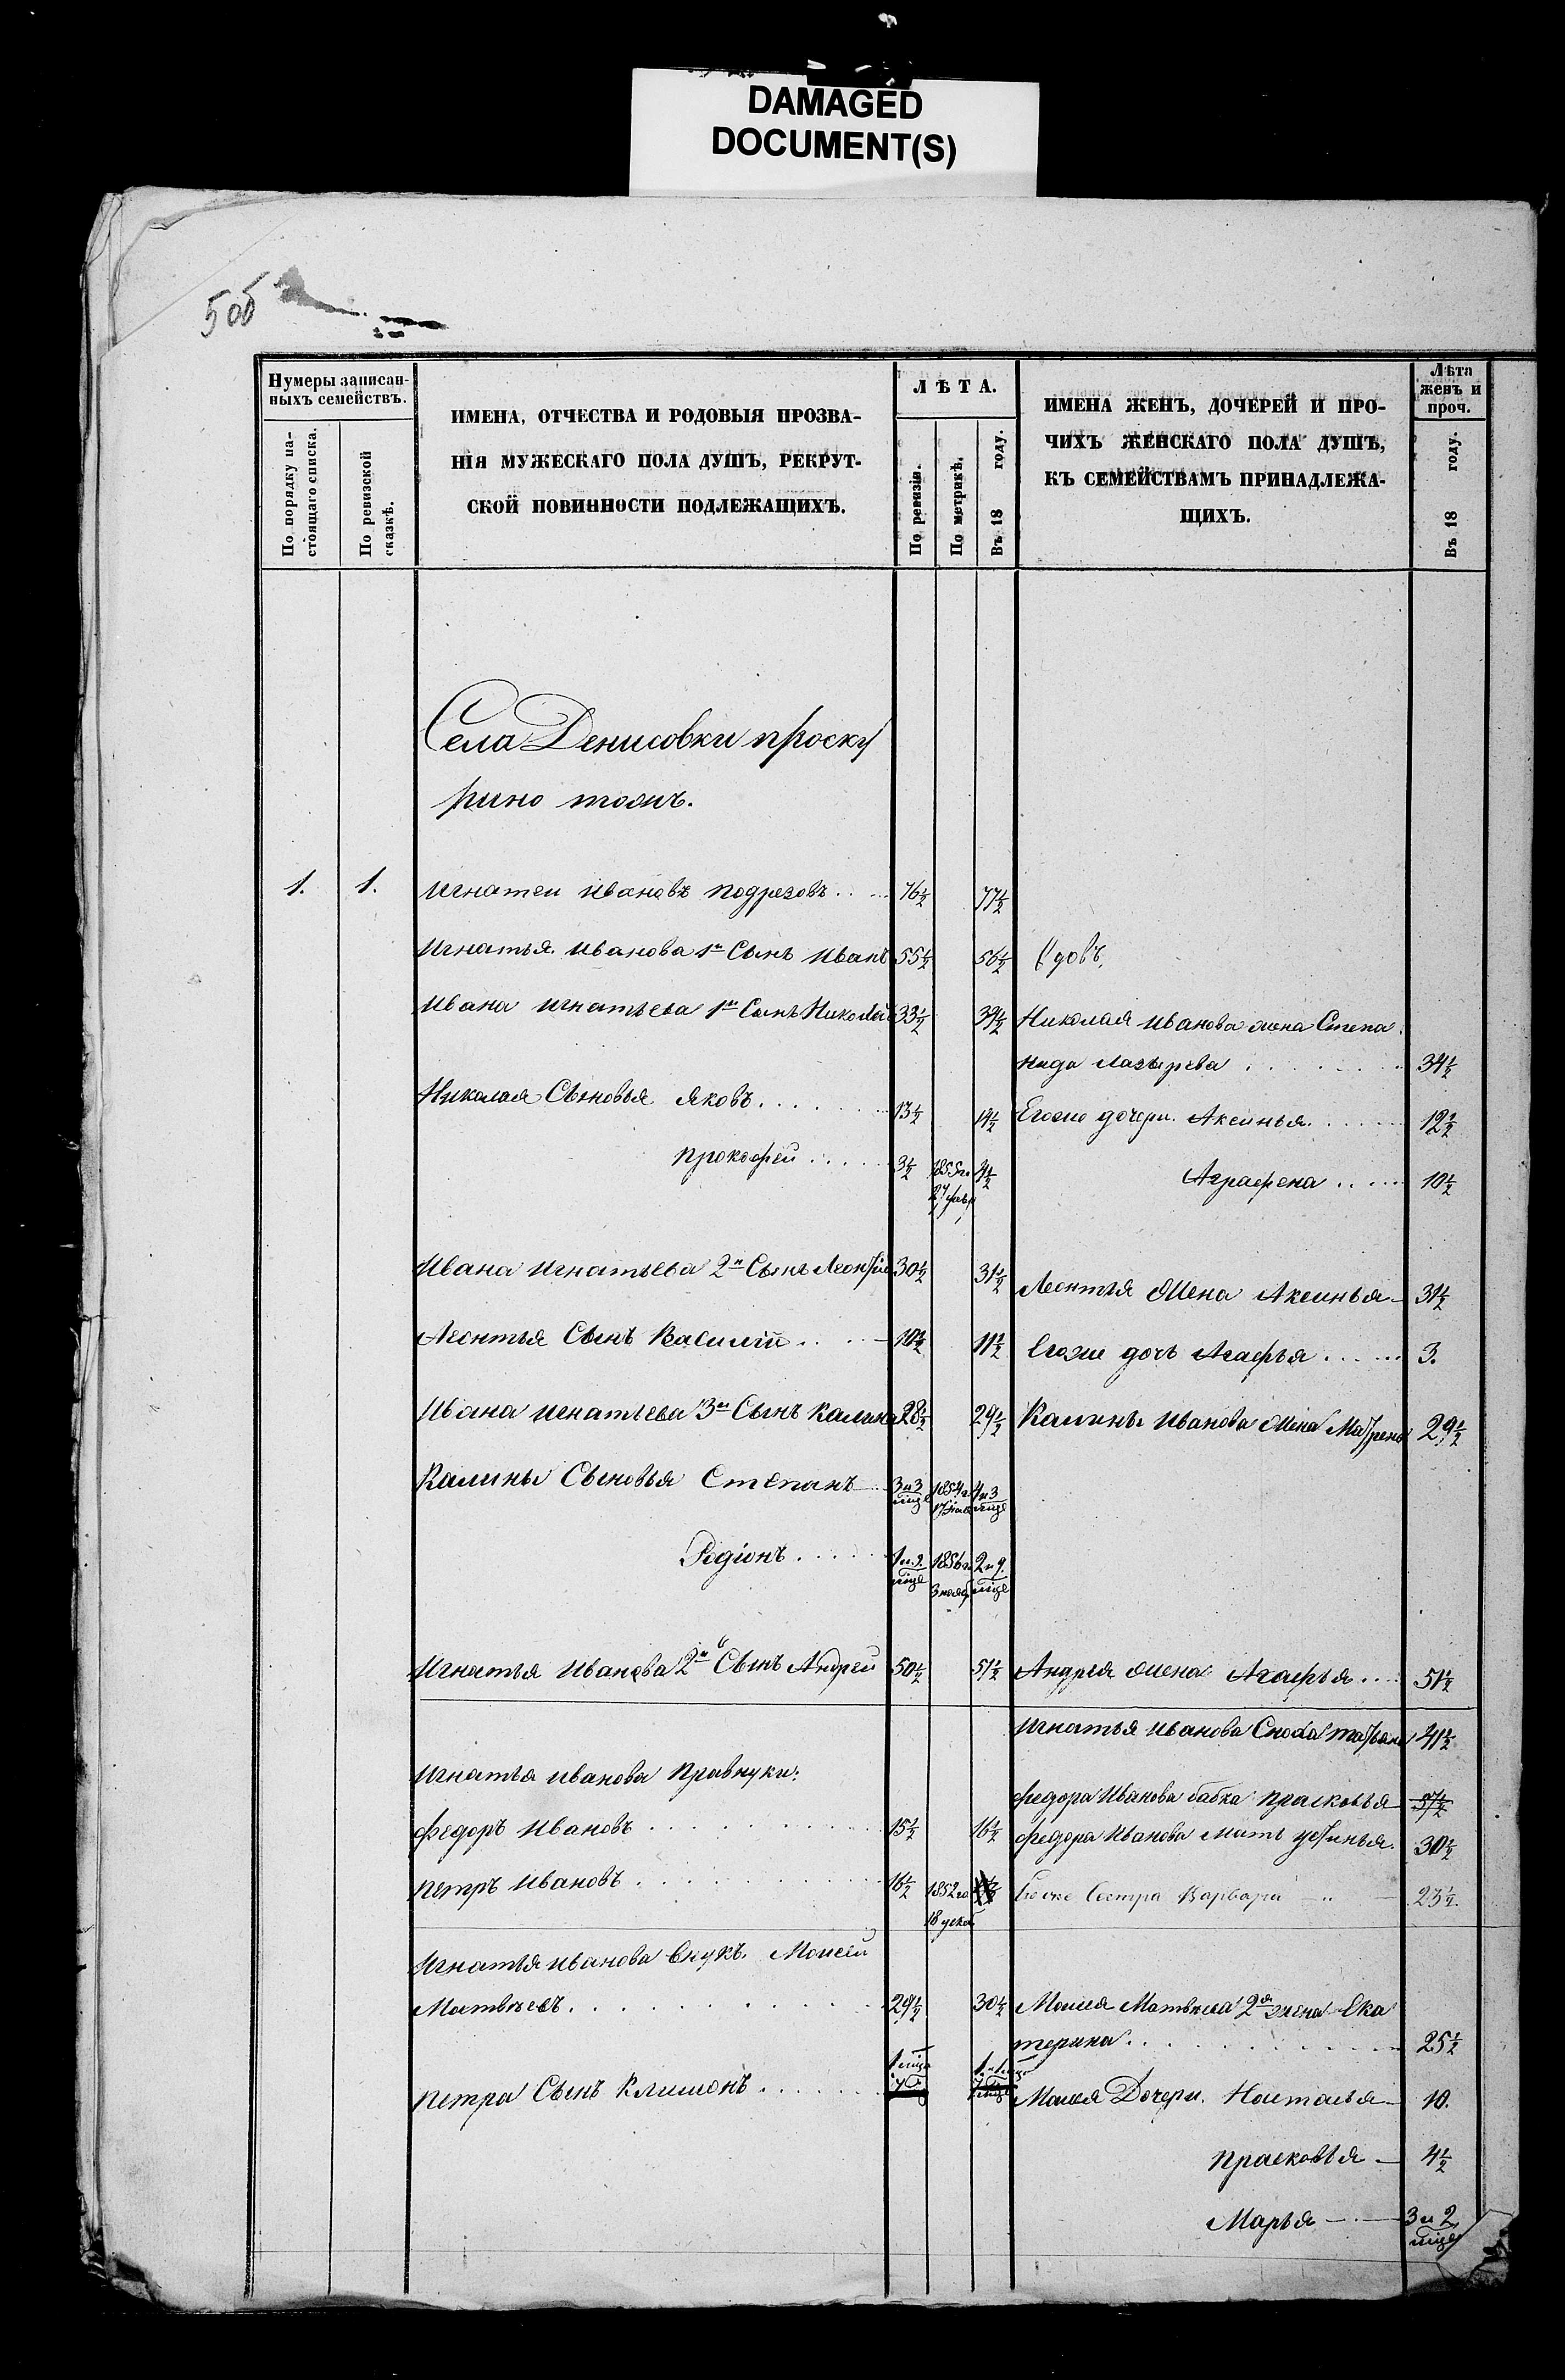 DAMAGED
DOCUMENT(S)
5об
Нумеры записан-
ныхъ семействъ.
По порядку на-
стоящаго списка.
По ревизской
сказкѣ.
ИМЕНА, ОТЧЕСТВА И РОДОВЫЯ ПРОЗВА-
НІЯ МУЖЕСКАГО ПОЛА ДУШЪ, РЕКРУТ-
СКОЙ ПОВИННОСТИ ПОДЛЕЖАЩИХЪ.
ЛѢТА.
По ревизіи.
По метрикѣ.
Въ 18 году.
ИМЕНА ЖЕНЪ, ДОЧЕРЕЙ И ПРО-
ЧИХЪ ЖЕНСКАГО ПОЛА ДУШЪ,
КЪ СЕМЕЙСТВАМЪ ПРИНАДЛЕЖА-
ЩИХЪ.
Лѣта
женъ и
проч.
Въ 18 году.
Села Денисовки проску
рино тожъ.
1. 1. Игнатеи Ивановъ Подрезовъ 76½ 77½
Игнатья Иванова 1й Сынъ Иванъ 55½ 56½ Вдовъ,
Ивана Игнатьева 1й Сынъ Николай 33½ 34½ Николая Иванова жена Степа
нида Лазырева 34½
Николая Сыновья Яковъ 13½ 14½ Егоже дочери Аксинья 12½
Прокофей 3½ 1855го 4½ Аграфена 10½
27 февр
Ивана Игнатьева 2й Сынъ Леонтiй 30½ 31½ Леонтья Жена Аксинья 31½
Леонтья Сынъ Василiй 10½ 11½ Егоже дочь Агафья 3.
Ивана Игнатьева 3й Сынъ Калина 28½ 29½ Калины Иванова Жена Матрена 29½
Калины Сыновья Степанъ 3 и 3 1854го 4 и 3
Родiонъ 1 и 9 1856го 2 и 9
3 нояб
Игнатья Иванова 2й Сынъ Андрей 50½ 51½ Андрея жена Агафья 51½
Игнатья Иванова Сноха Татьяна 41½
Игнатья Иванова Правнуки:
Федора Иванова бабка Прасковья 57½
Федоръ Ивановъ 15½ 16½ Федора Иванова мать Устинья 30½
Петръ Ивановъ 16½ 1852го Егоже Сестра Варвара 23½
Игнатья Иванова Внукъ. Моисей
Матвѣевъ 29½ 30½ Моисея Матвѣева 2я жена Ека
терина 25½
Петра Сынъ Климонъ Моисея Дочери. Настасья 10.
Прасковья 4½
Марья 3 и 2